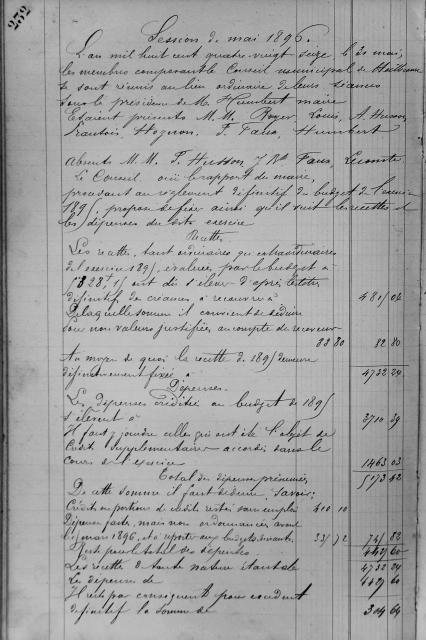 232
Session de mai 1896.
L'an mil huit cent quatre-vingt seize le 20 mai,
les membres composant le Conseil municipal de
se sont réunis au lieu ordinaire de leurs séances
sous la présidence de M. Humbert maire
Etaient présents M.M. Royer Louis, A. Husson
Hognon. F. Faus, Humbert
Absents M.M. F. Husson, J Bte Faus, Lecomte
Le Conseil ouï le rapport du maire,
procédant au règlement définitif du budget de l'exercice
1895, propose de fixer ainsi qu'il suit les recettes et
les dépenses du dit exercice
Recettes
Les recettes, tant ordinaires qu'extraordinaires
de l'exercice 1895, évaluées par le budget à
ont dû s'élever d'après les titres
définitifs de créances à recouvrer à
De laquelle somme il convient de déduire
les non valeurs justifiées au compte du receveur
82 80 82 80
Au moyen de quoi la recette de 1895 demeure
définitivement fixée à 4732 24
Dépenses.
Les dépenses créditées au budget de 1895
s'élèvent à 3710 39
Il faut y joindre celles qui ont été l'objet de
Crédits supplémentaires accordés dans le
cours de l'exercice 1463 03
Total des dépenses présumées 5173 42
De cette somme il faut déduire, savoir:
Crédits ou portions de crédits restés sans emploi 410 10
Dépenses faites, mais non ordonnancées avant
le 15 mars 1896, et à reporter aux budgets suivants
Reste pour le total des dépenses
Les recettes de toute nature étant de 4732 24
Les dépenses de
Il est par conséquent pour excédent
définitif la somme de 304 64